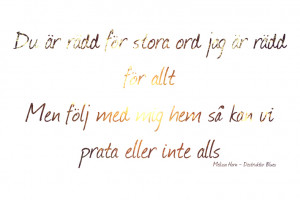 Du är rädd för stora ord jag är rädd
för allt
Men följ med mig hem så kan vi
prata eller inte alls
Melissa Horn - Destruktiv Blues